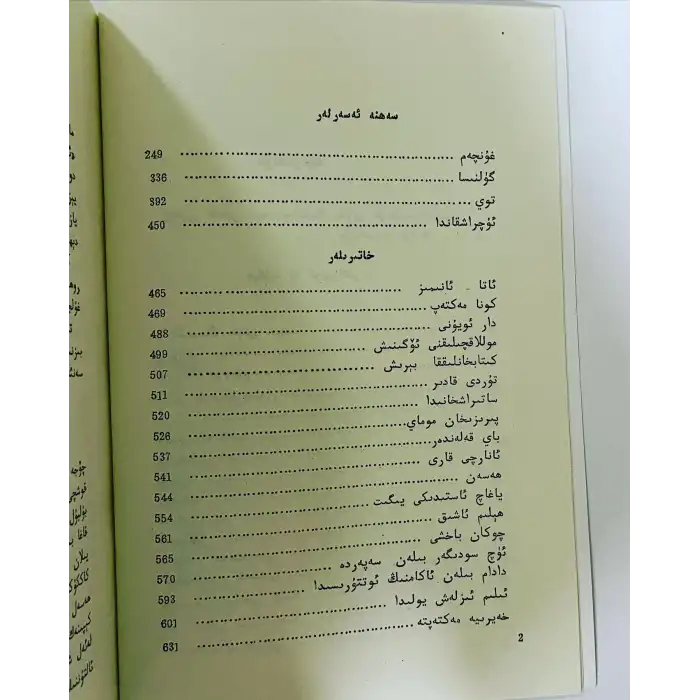 سەھنە ئەسەرلەر
غۇنچەم ........ 249
گۈلنىسا ........ 336
توي ........ 392
ئۇچراشقاندا ........ 450
خاتىرىلەر
ئاتا - ئانىمىز ........ 465
كونا مەكتەپ ........ 469
دار ئويۇنى ........ 488
موللاقچىلىقنى ئۆگىنىش ........ 499
كىتابخانلىققا بېرىش ........ 507
تۇردى قادىر ........ 511
ساتىراشخانىدا ........ 520
پىرىزىخان موماي ........ 526
باي قەلەندەر ........ 537
ئانارچى قارى ........ 541
ھەسەن ........ 544
ياغاچ ئاستىدىكى يىگىت ........ 554
ھېلىم ئاشىق ........ 561
چوكان باخشى ........ 565
ئۈچ سودىگەر بىلەن سەپەردە ........ 570
دادام بىلەن ئاكامنىڭ ئوتتۇرىسىدا ........ 593
ئىلىم ئىزلەش يولىدا ........ 601
خەيرىيە مەكتەپتە ........ 631
2